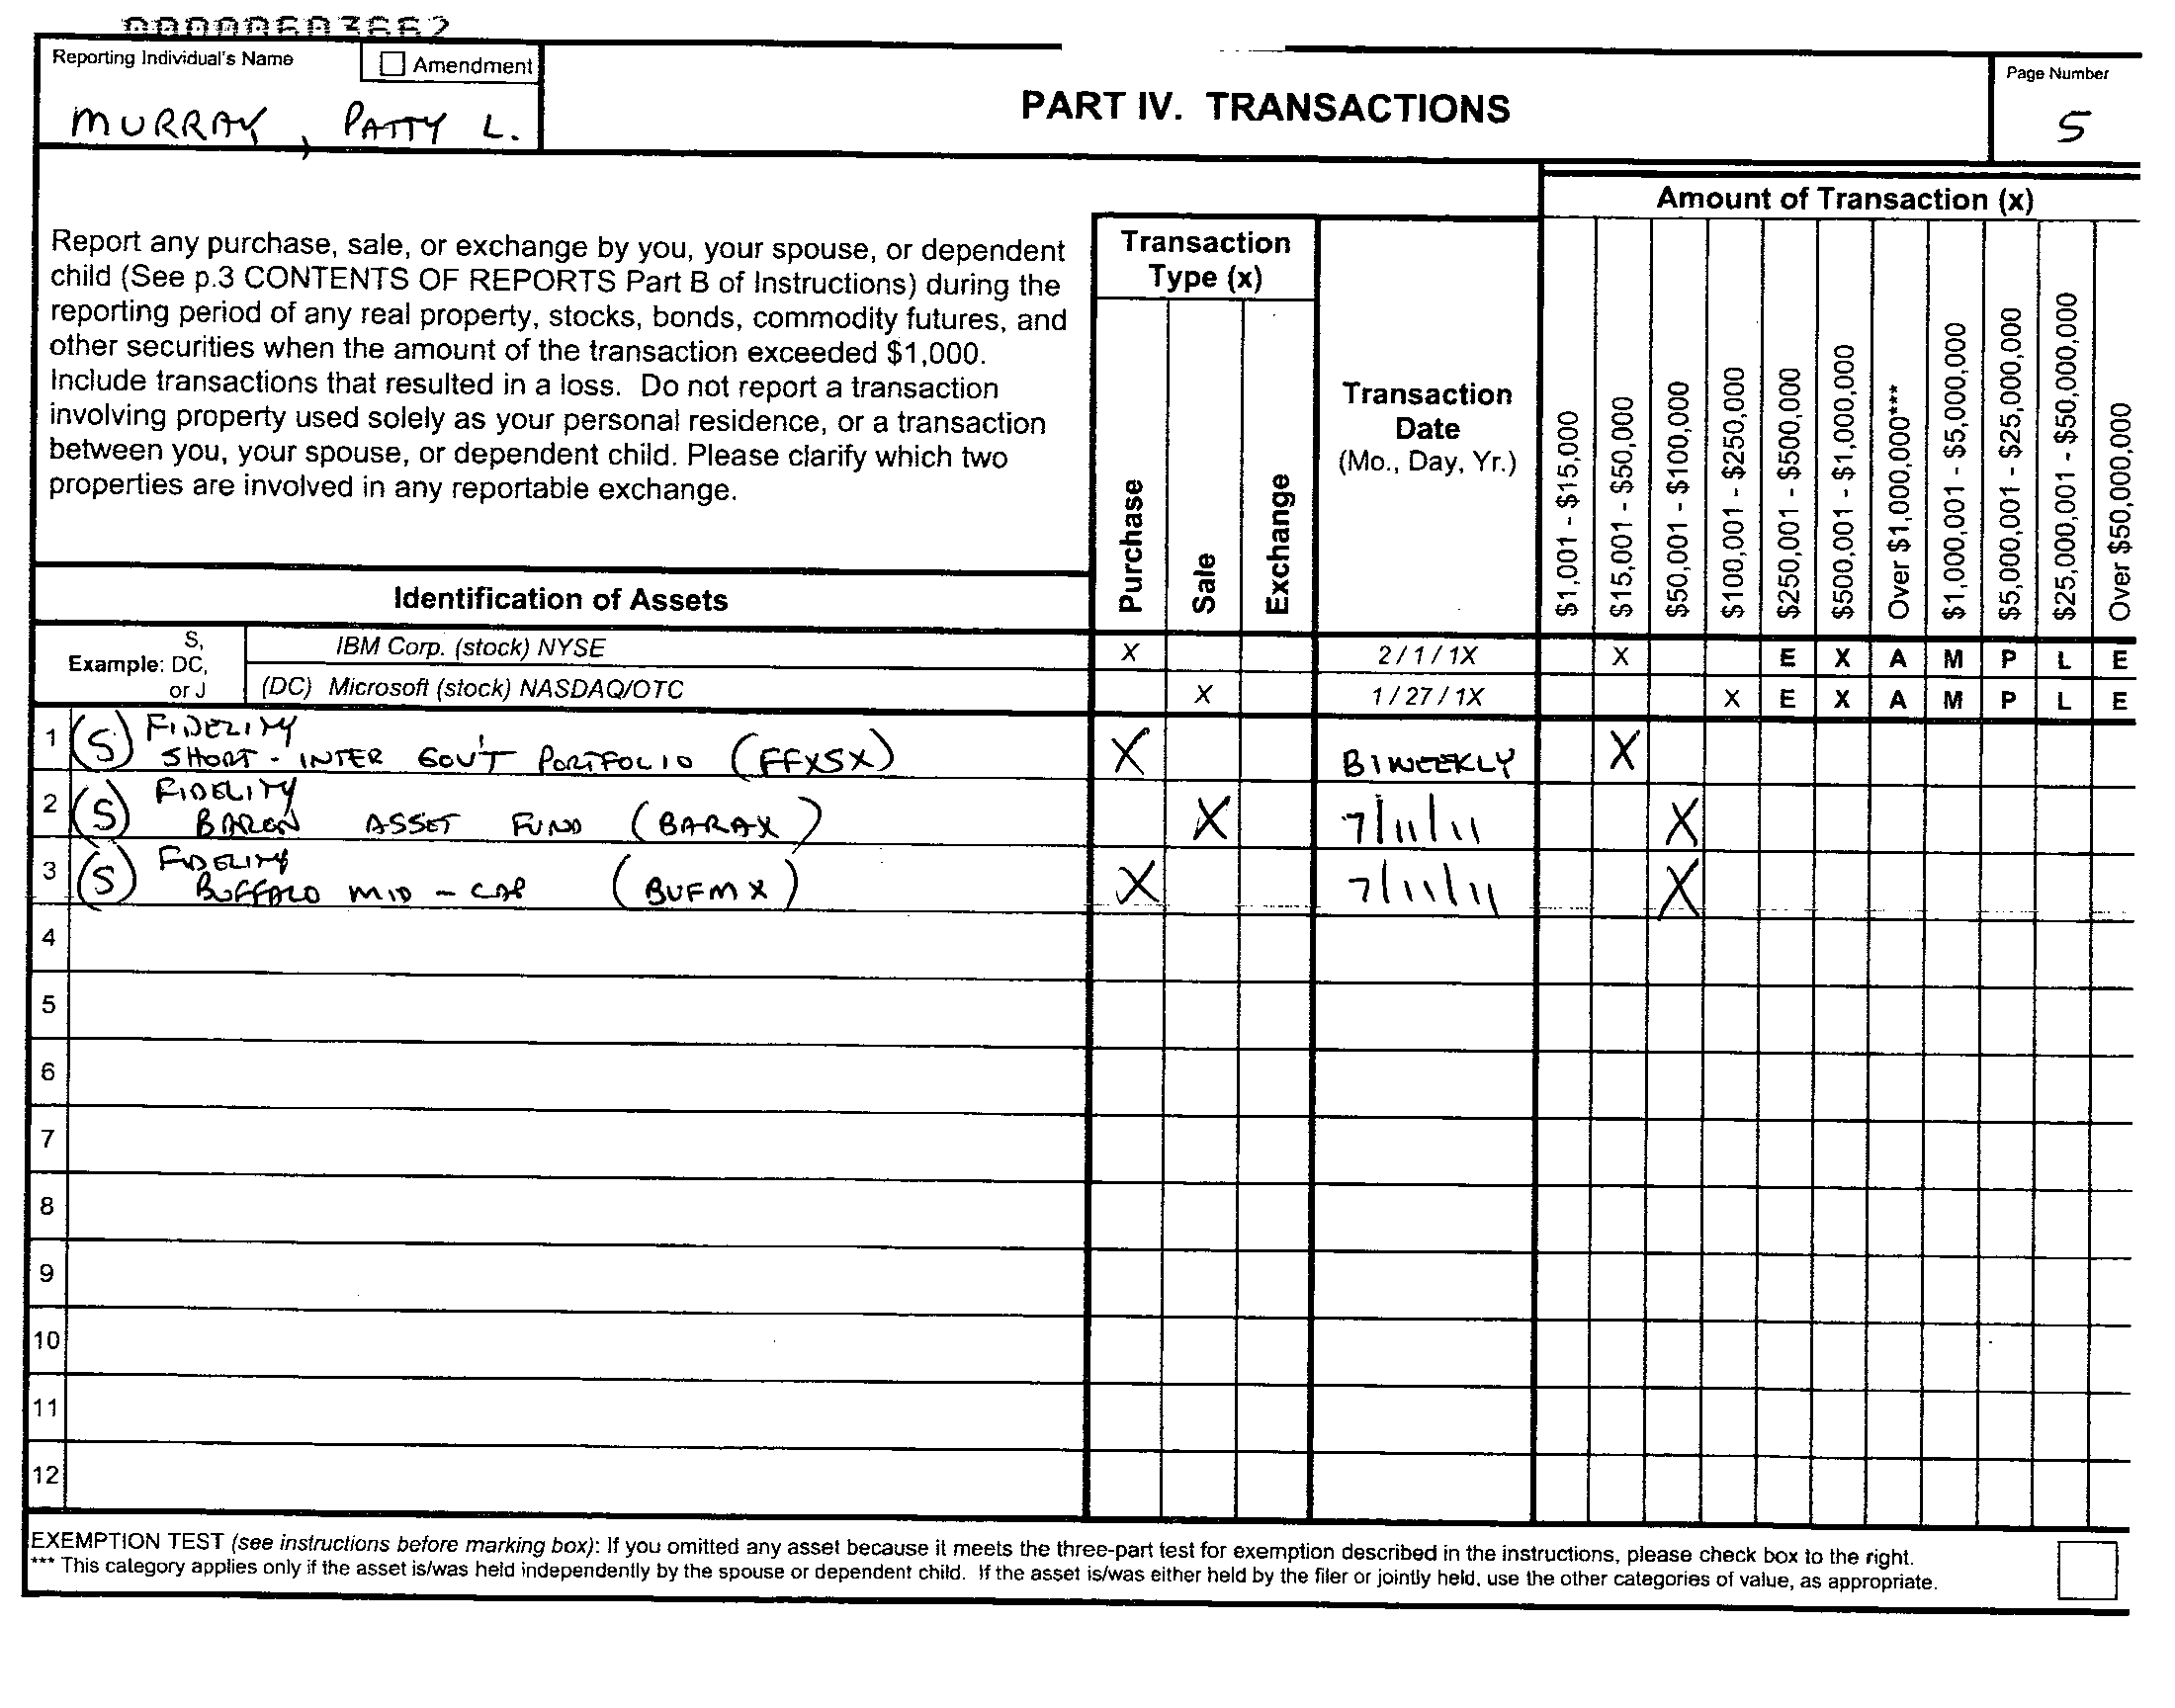 00000603662
Reporting Individual's Name
Amendment
MURRAY, PATTY L.
PART IV. TRANSACTIONS
Page Number
5
Report any purchase, sale, or exchange by you, your spouse, or dependent
child (See p.3 CONTENTS OF REPORTS Part B of Instructions) during the
reporting period of any real property, stocks, bonds, commodity futures, and
other securities when the amount of the transaction exceeded $1,000.
Include transactions that resulted in a loss. Do not report a transaction
involving property used solely as your personal residence, or a transaction
between you, your spouse, or dependent child. Please clarify which two
properties are involved in any reportable exchange.
Identification of Assets
Transaction
Type (x)
Purchase
Sale
Exchange
Transaction
Date
(Mo., Day, Yr.)
Amount of Transaction (x)
$1,001 - $15,000
$15,001 - $50,000
$50,001 - $100,000
$100,001 - $250,000
$250,001 - $500,000
$500,001 - $1,000,000
Over $1,000,000***
$1,000,001 - $5,000,000
$5,000,001 - $25,000,000
$25,000,001 - $50,000,000
Over $50,000,000
Example: S, DC, or J
IBM Corp. (stock) NYSE X 2 / 1 / 1X X E X A M P L E
(DC) Microsoft (stock) NASDAQ/OTC X 1 / 27 / 1X X E X A M P L E
1 (S) FIDELITY
SHORT - INTER GOV'T PORTFOLIO (FFXSX) X BIWEEKLY X
2 (S) FIDELITY
BARON ASSET FUND (BARAX) X 7/11/11 X
3 (S) FIDELITY
BUFFALO MID - CAP (BUFMX) X 7/11/11 X
4
5
6
7
8
9
10
11
12
EXEMPTION TEST (see instructions before marking box): If you omitted any asset because it meets the three-part test for exemption described in the instructions, please check box to the right.
*** This category applies only if the asset is/was held independently by the spouse or dependent child. If the asset is/was either held by the filer or jointly held, use the other categories of value, as appropriate.